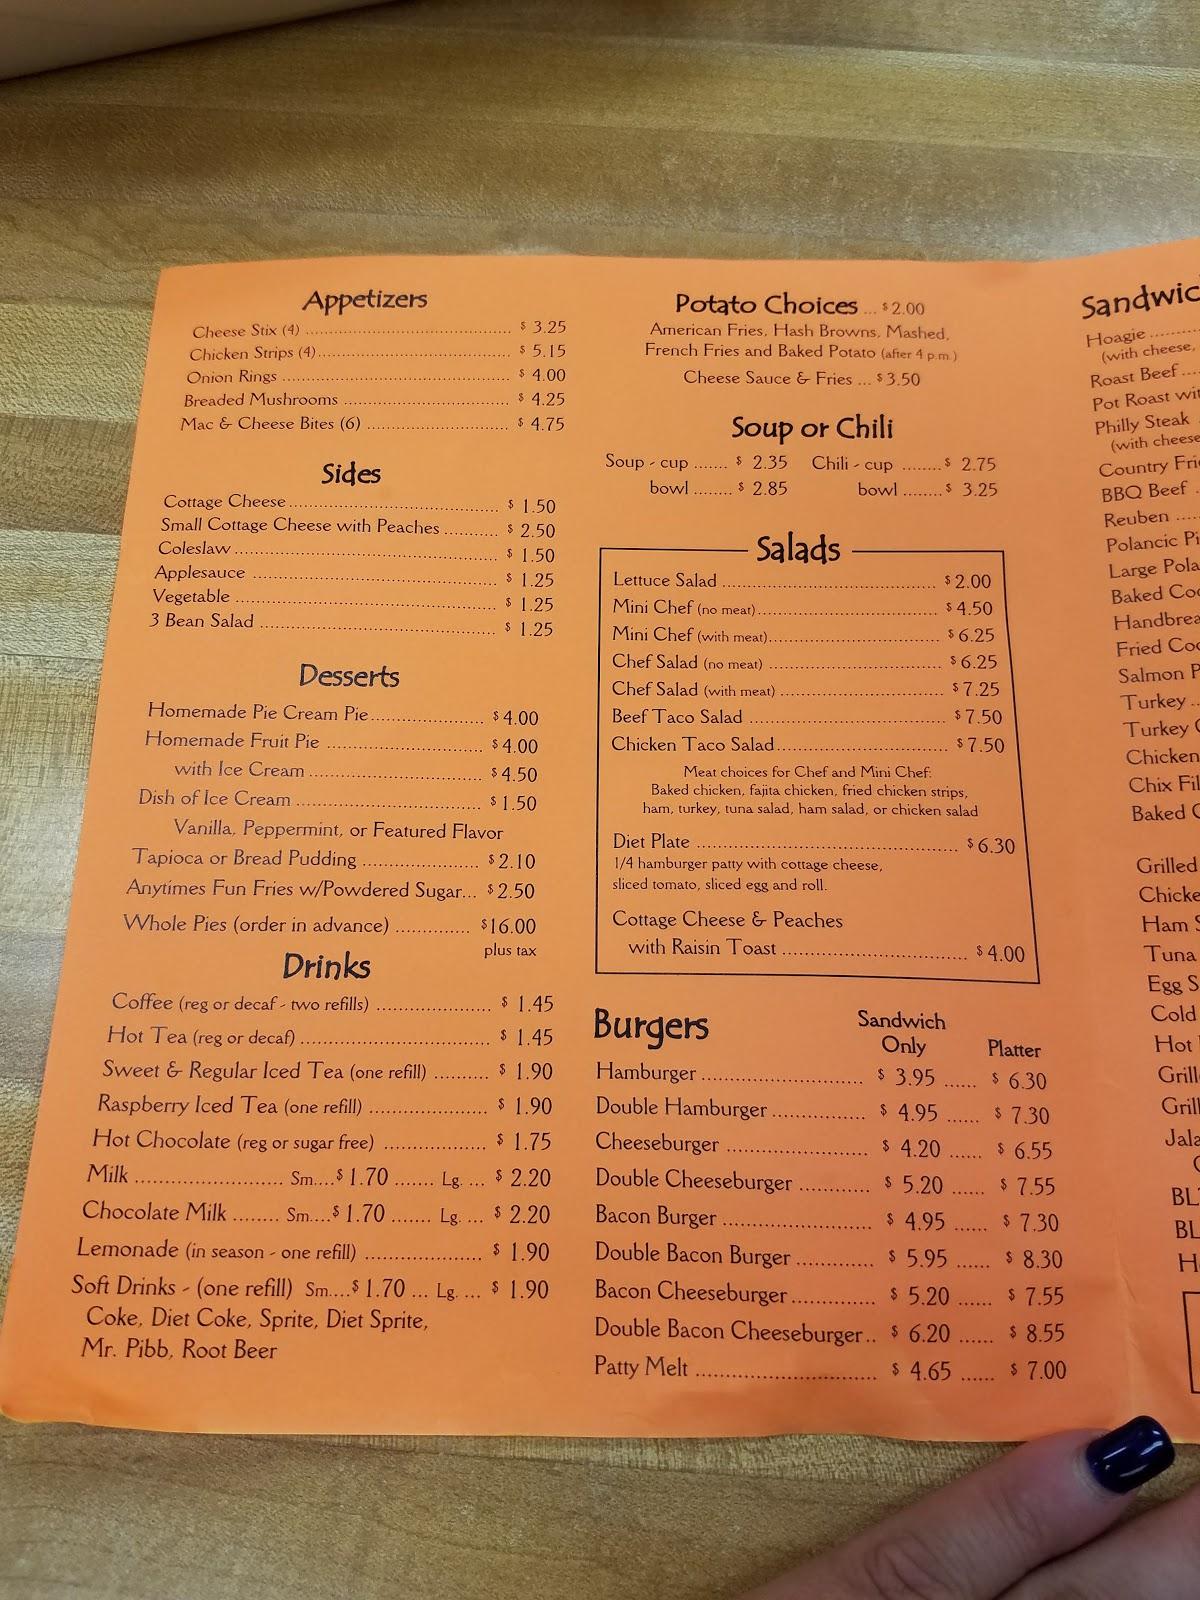 Appetizers
Cheese Stix (4) ........ $ 3.25
Chicken Strips (4) ........ $ 5.15
Onion Rings ........ $ 4.00
Breaded Mushrooms ........ $ 4.25
Mac & Cheese Bites (6) ........ $ 4.75
Sides
Cottage Cheese ........ $ 1.50
Small Cottage Cheese with Peaches ........ $ 2.50
Coleslaw ........ $ 1.50
Applesauce ........ $ 1.25
Vegetable ........ $ 1.25
3 Bean Salad ........ $ 1.25
Desserts
Homemade Pie Cream Pie ........ $ 4.00
Homemade Fruit Pie ........ $ 4.00
with Ice Cream ........ $ 4.50
Dish of Ice Cream ........ $ 1.50
Vanilla, Peppermint, or Featured Flavor
Tapioca or Bread Pudding ........ $ 2.10
Anytimes Fun Fries w/Powdered Sugar... $ 2.50
Whole Pies (order in advance) ........ $16.00
plus tax
Drinks
Coffee (reg or decaf - two refills) ........ $ 1.45
Hot Tea (reg or decaf) ........ $ 1.45
Sweet & Regular Iced Tea (one refill) ........ $ 1.90
Raspberry Iced Tea (one refill) ........ $ 1.90
Hot Chocolate (reg or sugar free) ........ $ 1.75
Milk ........ Sm....$ 1.70 ....... Lg. ... $ 2.20
Chocolate Milk ........ Sm....$ 1.70 ....... Lg. ... $ 2.20
Lemonade (in season - one refill) ........ $ 1.90
Soft Drinks - (one refill) Sm....$ 1.70 ... Lg. ... $ 1.90
Coke, Diet Coke, Sprite, Diet Sprite,
Mr. Pibb, Root Beer
Potato Choices ... $ 2.00
American Fries, Hash Browns, Mashed,
French Fries and Baked Potato (after 4 p.m.)
Cheese Sauce & Fries ... $ 3.50
Soup or Chili
Soup - cup ....... $ 2.35 Chili - cup ........ $ 2.75
bowl ........ $ 2.85 bowl ........ $ 3.25
Salads
Lettuce Salad ........ $ 2.00
Mini Chef (no meat) ........ $ 4.50
Mini Chef (with meat) ........ $ 6.25
Chef Salad (no meat) ........ $ 6.25
Chef Salad (with meat) ........ $ 7.25
Beef Taco Salad ........ $ 7.50
Chicken Taco Salad ........ $ 7.50
Meat choices for Chef and Mini Chef:
Baked chicken, fajita chicken, fried chicken strips,
ham, turkey, tuna salad, ham salad, or chicken salad
Diet Plate ........ $ 6.30
1/4 hamburger patty with cottage cheese,
sliced tomato, sliced egg and roll.
Cottage Cheese & Peaches
with Raisin Toast ........ $ 4.00
Burgers
Sandwich
Only Platter
Hamburger ........ $ 3.95 ...... $ 6.30
Double Hamburger ........ $ 4.95 ...... $ 7.30
Cheeseburger ........ $ 4.20 ...... $ 6.55
Double Cheeseburger ........ $ 5.20 ...... $ 7.55
Bacon Burger ........ $ 4.95 ...... $ 7.30
Double Bacon Burger ........ $ 5.95 ...... $ 8.30
Bacon Cheeseburger ........ $ 5.20 ...... $ 7.55
Double Bacon Cheeseburger.. $ 6.20 ...... $ 8.55
Patty Melt ........ $ 4.65 ...... $ 7.00
Sandwic
Hoagie ........
(with cheese,
Roast Beef ....
Pot Roast wit
Philly Steak
(with cheese
Country Fri
BBQ Beef
Reuben ........
Polancic Pi
Large Pola
Baked Cod
Handbrea
Fried Cod
Salmon P
Turkey ..
Turkey
Chicken
Chix Fil
Baked
Grilled
Chicke
Ham S
Tuna
Egg S
Cold
Hot
Grill
Grill
Jala
BL
BL